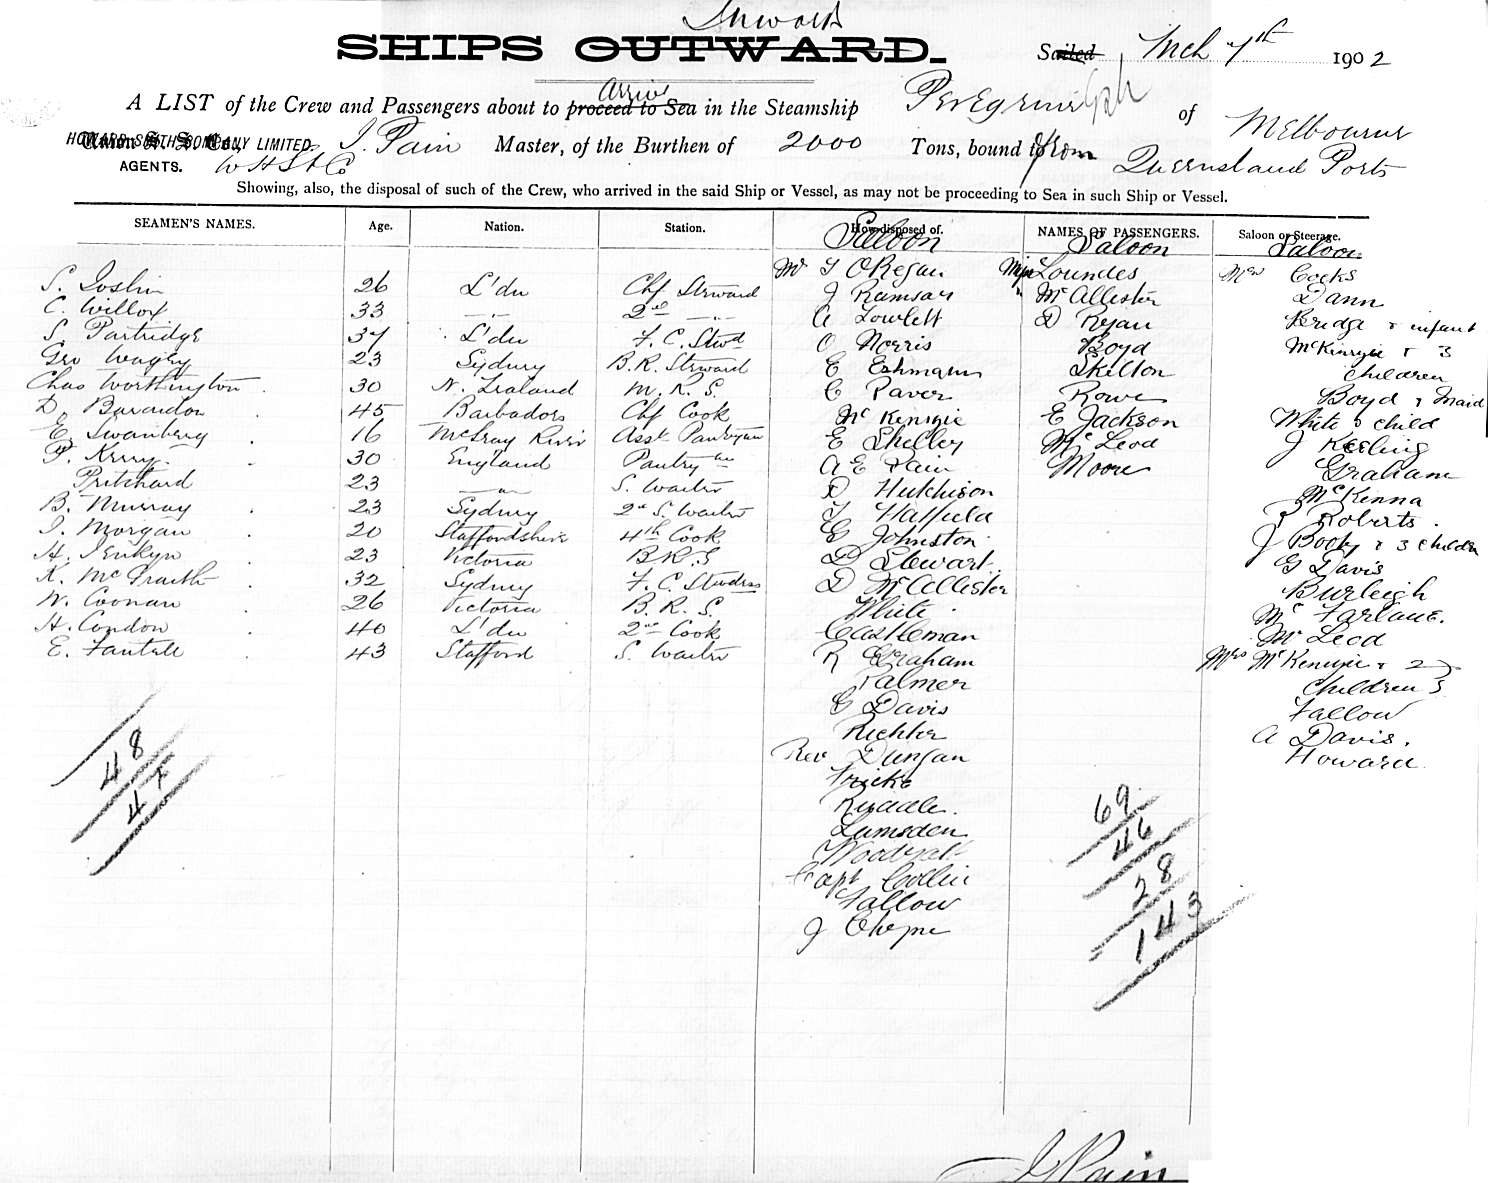 Inwards
SHIPS OUTWARD.
Sailed Mch 7th 1902
A LIST of the Crew and Passengers about to proceed to Sea arrive in the Steamship Peregrine of Melbourne
HOWARD SMITH COMPANY LIMITED.
AGENTS. W H S & Co
J. Pain Master, of the Burthen of 2000 Tons, bound to from Queensland Ports
Showing, also, the disposal of such of the Crew, who arrived in the said Ship or Vessel, as may not be proceeding to Sea in such Ship or Vessel.
SEAMEN'S NAMES. Age. Nation. Station. How disposed of. NAMES OF PASSENGERS. Saloon or Steerage.
Saloon Saloon Saloon
S. Joslin 26 L'du Chf Steward
C. Willox 33 — " — 2nd — " —
S. Partridge 37 L'du F. C. Stwd
Geo Wagby 23 Sydney B. R. Steward
Chas Worthington 30 N. Zealand M. R. S.
D. 45 Barbados Chf Cook
E. Swanbery 16 River Asst Pantryman
P. Kerry 30 England Pantryman
Pritchard 23 — " — S. Waiter
B. Murray 23 Sydney 2nd S. Waiter
J. Morgan 20 Staffordshire 4th Cook
H. Jenkyn 23 Victoria B R S
K. McGrath 32 Sydney F. C. Stwdrss
W. Coonan 26 Victoria B. R. S.
H. Condon 40 L'du 2nd Cook
E. 43 Stafford S. Waiter
48
47
Mr T O'Regan
J Ramsay
A Lowlett
O Norris
E
C Paver
McKenzie
E Shelley
A E Pain
D Hutchison
T Hatfield
G Johnston
D Stewart
D McAllister
White
Castleman
R Graham
Palmer
G Davis
Richter
Rev Duncan
Fricke
Ruddle
Lumsden
Woodyatt
Capt Collin
Fallow
J Cheyne
Miss Loundes
" McAllister
D Ryan
Boyd
Skelton
Rowe
E Jackson
McLeod
Moore
69
46
28
143
Mrs Cocks
Dann
Bridge & infant
McKenzie & 3
children
Boyd & Maid
White & child
J Keeling
Graham
McKenna
P Roberts
J Booby & 3 children
G Davis
Burleigh
McFarlane.
McLeod
Mrs McKenzie & 2
children
Fallow
A Davis.
Howard
J Pain